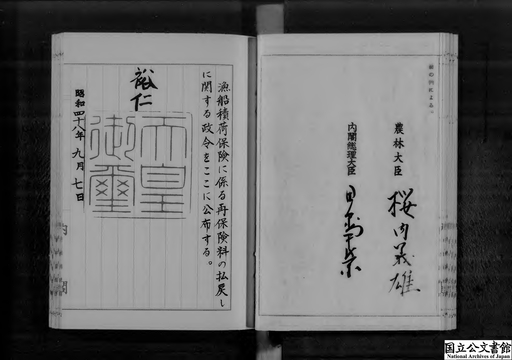 漁船積荷保険に係る再保険料の払戻し
に関する政令をここに公布する。
裕仁
天皇御璽
昭和四十八年九月七日
内閣
農林大臣 桜内義雄
内閣総理大臣 田中角榮
国立公文書館
National Archives of Japan